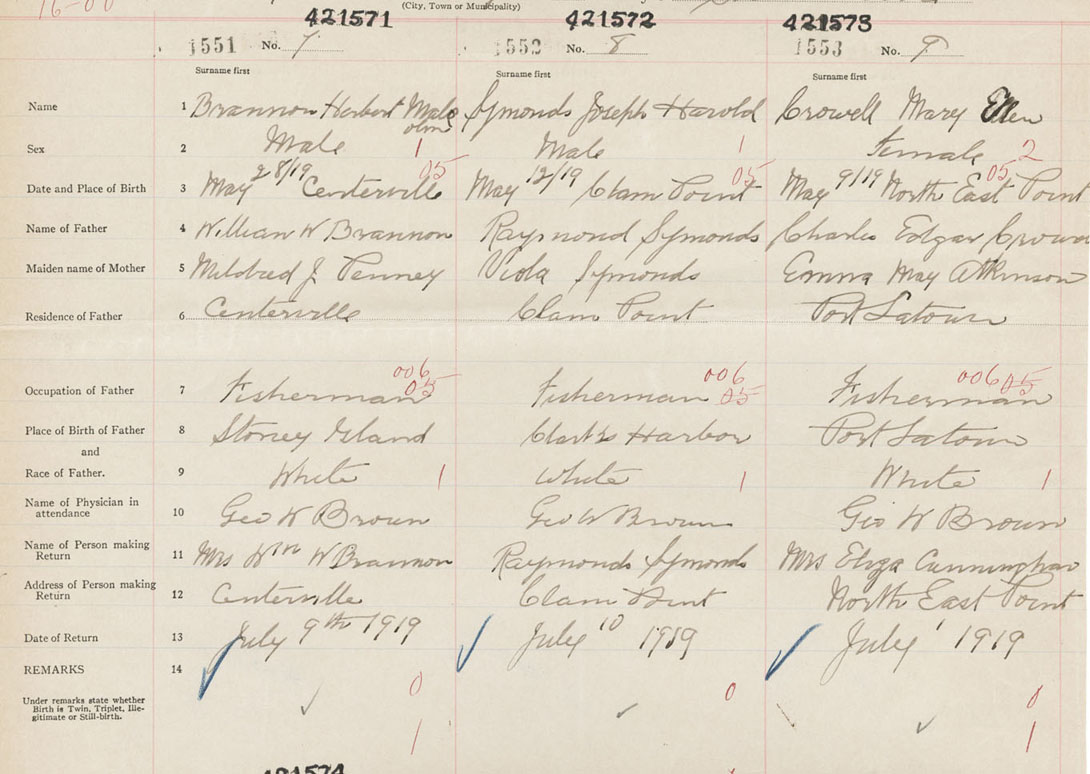 16-00
(City, Town or Municipality)
421571 421572 421573
1551 No. 7 1552 No. 8 1553 No. 9
Surname first Surname first Surname first
Name 1 Brannon Herbert Malcolm Symonds Joseph Harold Crowell Mary Ellen
Sex 2 Male 1 Male 1 Female 2
05 05 05
Date and Place of Birth 3 May 28/19 Centerville May 12/19 Clam Point May 9/19 North East Point
Name of Father 4 William W Brannon Raymond Symonds Charles Edgar
Maiden name of Mother 5 Mildred J. Penney Viola Symonds Emma May Atkinson
Residence of Father 6 Centerville Clam Point Port Latour
006 006 006
05 05 05
Occupation of Father 7 Fisherman Fisherman Fisherman
Place of Birth of Father 8 Stoney Island Clark's Harbor Port Latour
and
Race of Father. 9 White 1 White 1 White 1
Name of Physician in
attendance 10 Geo W Brown Geo W Brown Geo W Brown
Name of Person making
Return 11 Mrs Wm W Brannon Raymond Symonds Mrs Eliza Cunningham
Address of Person making
Return 12 Centerville Clam Point North East Point
Date of Return 13 July 9th 1919 July 10 1919 July 1 1919
REMARKS 14
0 0 0
Under remarks state whether
Birth is Twin, Triplet, Ille-
gitimate or Still-birth.
1 1
421574